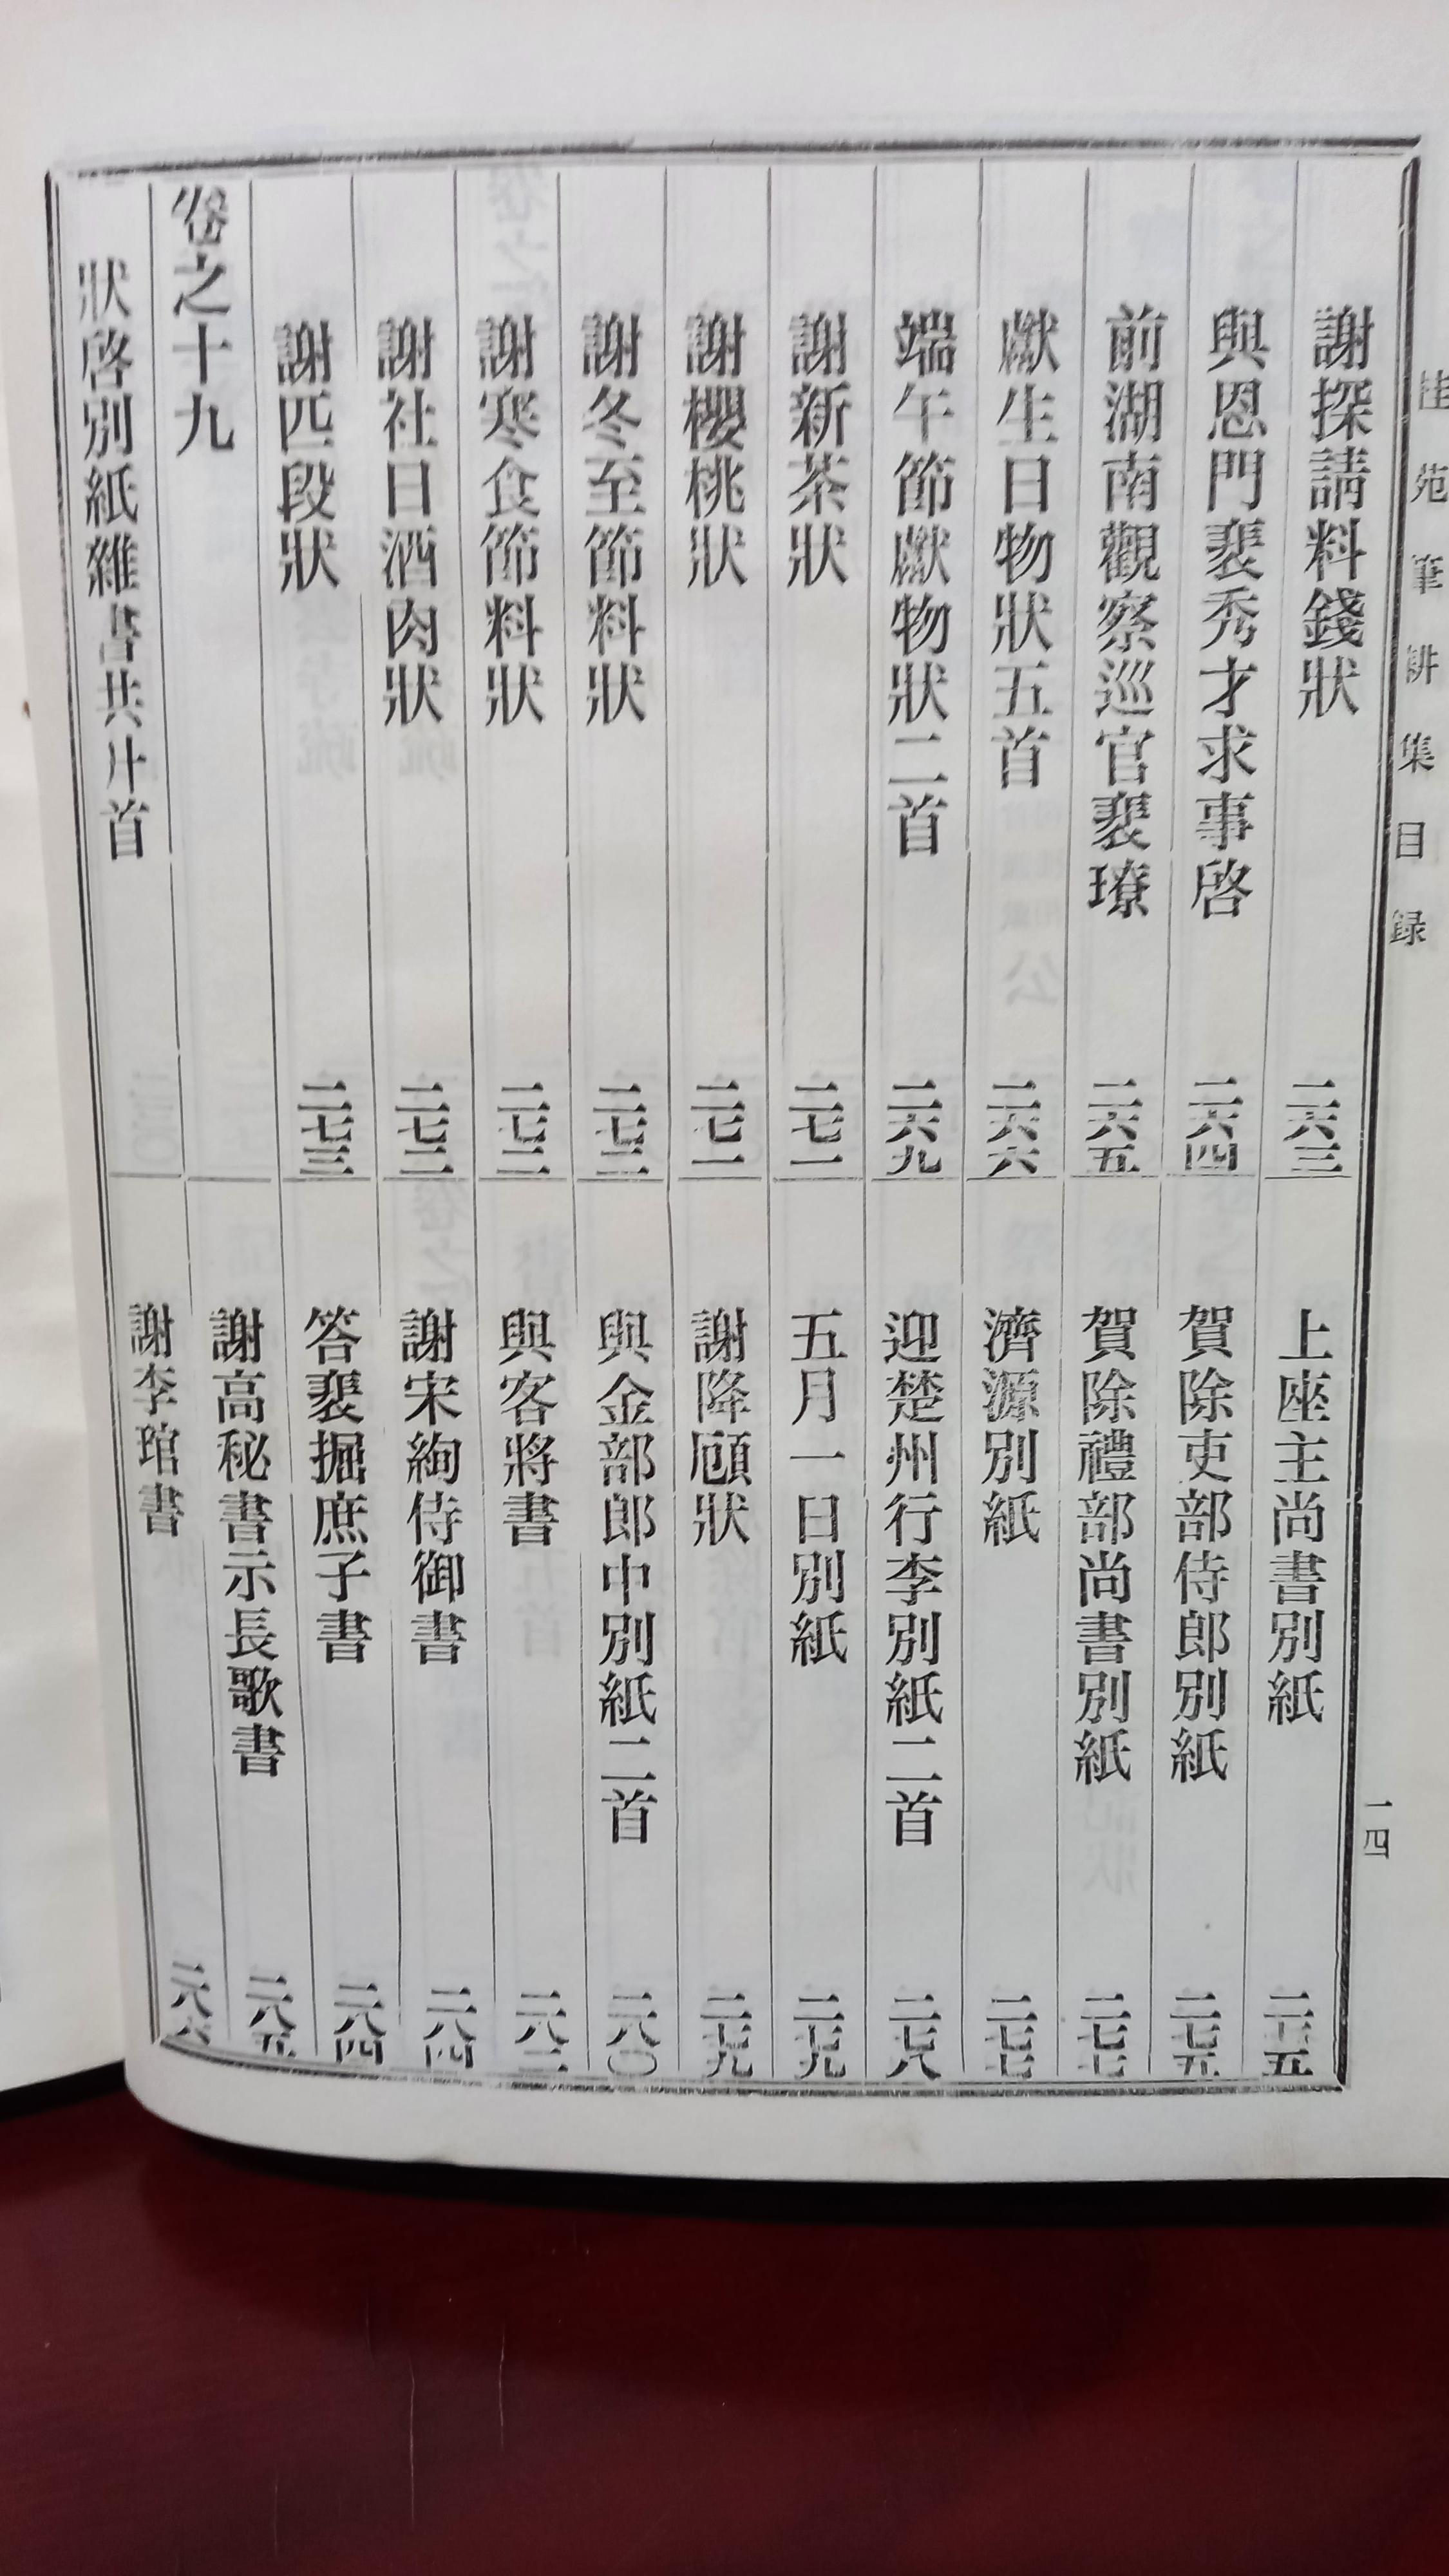 桂苑筆耕集目録
一四
謝探請料錢狀 二六三
與恩門裴秀才求事啓 二六四
前湖南觀察巡官裴璙 二六五
獻生日物狀五首 二六六
端午節獻物狀二首 二六九
謝新茶狀 二七一
謝櫻桃狀 二七一
謝冬至節料狀 二七二
謝寒食節料狀 二七二
謝社日酒肉狀 二七二
謝匹段狀 二七三
卷之十九
狀啓別紙雜書共廿首
上座主尚書別紙 二七五
賀除吏部侍郎別紙 二七五
賀除禮部尚書別紙 二七七
濟源別紙 二七七
迎楚州行李別紙二首 二七八
五月一日別紙 二七九
謝降顧狀 二七九
與金部郎中別紙二首 二八〇
與客將書 二八二
謝宋絢侍御書 二八四
答裴掘庶子書 二八四
謝高秘書示長歌書 二八五
謝李琯書 二八六